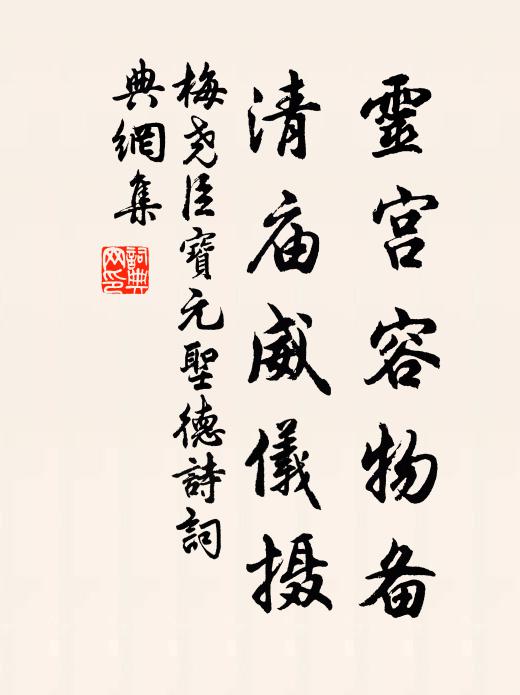 靈宫容物备
清庙威儀摄
梅尧臣寳元聖德詩詞
典網集
詞典
网印